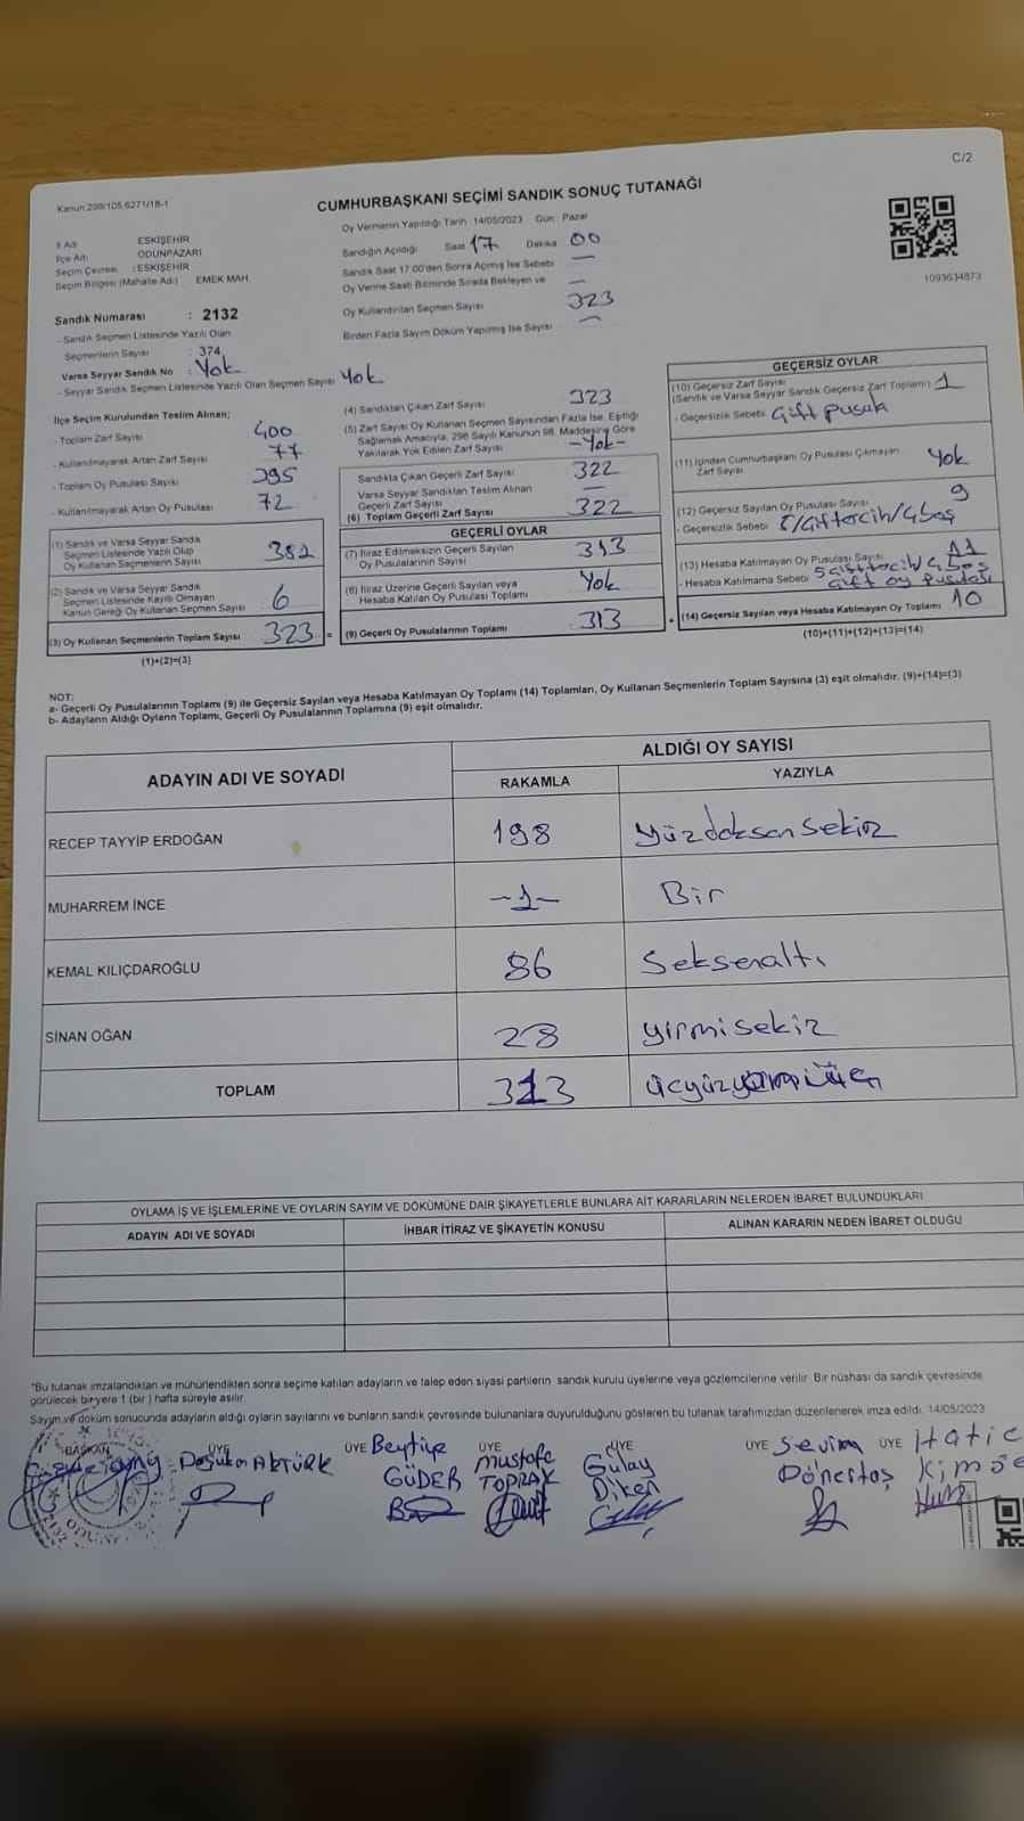 C/2
Kanun:298/105.6271/18-1
CUMHURBAŞKANI SEÇİMİ SANDIK SONUÇ TUTANAĞI
Oy Vermenin Yapıldığı Tarih :14/05/2023 Gün : Pazar
İl Adı : ESKİŞEHİR
İlçe Adı : ODUNPAZARI
Seçim Çevresi : ESKİŞEHİR
Seçim Bölgesi (Mahalle Adı) : EMEK MAH.
Sandığın Açıldığı Saat 17 Dakika 00
Sandık Saat 17.00'den Sonra Açılmış İse Sebebi —
Oy Verme Saati Bitiminde Sırada Bekleyen ve —
Oy Kullandırılan Seçmen Sayısı 323
Birden Fazla Sayım Döküm Yapılmış İse Sayısı —
1093634873
Sandık Numarası : 2132
- Sandık Seçmen Listesinde Yazılı Olan
Seçmenlerin Sayısı : 374
Varsa Seyyar Sandık No : Yok
- Seyyar Sandık Seçmen Listesinde Yazılı Olan Seçmen Sayısı Yok
İlçe Seçim Kurulundan Teslim Alınan;
- Toplam Zarf Sayısı 400
- Kullanılmayarak Artan Zarf Sayısı 77
- Toplam Oy Pusulası Sayısı 395
- Kullanılmayarak Artan Oy Pusulası 72
(1) Sandık ve Varsa Seyyar Sandık
Seçmen Listesinde Yazılı Olup
Oy Kullanan Seçmenlerin Sayısı
(2) Sandık ve Varsa Seyyar Sandık
Seçmen Listesinde Kayıtlı Olmayan
Kanun Gereği Oy Kullanan Seçmen Sayısı 6
(3) Oy Kullanan Seçmenlerin Toplam Sayısı 323 =
(1)+(2)=(3)
(4) Sandıktan Çıkan Zarf Sayısı 323
(5) Zarf Sayısı Oy Kullanan Seçmen Sayısından Fazla İse, Eşitliği
Sağlamak Amacıyla, 298 Sayılı Kanunun 98. Maddesine Göre
Yakılarak Yok Edilen Zarf Sayısı -Yok-
Sandıkta Çıkan Geçerli Zarf Sayısı 322
Varsa Seyyar Sandıktan Teslim Alınan
Geçerli Zarf Sayısı —
(6) Toplam Geçerli Zarf Sayısı 322
GEÇERLİ OYLAR
(7) İtiraz Edilmeksizin Geçerli Sayılan
Oy Pusulalarının Sayısı 313
(8) İtiraz Üzerine Geçerli Sayılan veya
Hesaba Katılan Oy Pusulası Toplamı Yok
(9) Geçerli Oy Pusulalarının Toplamı 313 +
GEÇERSİZ OYLAR
(10) Geçersiz Zarf Sayısı
(Sandık ve Varsa Seyyar Sandık Geçersiz Zarf Toplamı) 1
- Geçersizlik Sebebi Çift pusula
(11) İçinden Cumhurbaşkanı Oy Pusulası Çıkmayan
Zarf Sayısı Yok
(12) Geçersiz Sayılan Oy Pusulası Sayısı 9
- Geçersizlik Sebebi
(13) Hesaba Katılmayan Oy Pusulası Sayısı
- Hesaba Katılmama Sebebi
Çift oy pusulası
(14) Geçersiz Sayılan veya Hesaba Katılmayan Oy Toplamı 10
(10)+(11)+(12)+(13)=(14)
NOT:
a- Geçerli Oy Pusulalarının Toplamı (9) ile Geçersiz Sayılan veya Hesaba Katılmayan Oy Toplamı (14) Toplamları, Oy Kullanan Seçmenlerin Toplam Sayısına (3) eşit olmalıdır. (9)+(14)=(3)
b- Adayların Aldığı Oyların Toplamı, Geçerli Oy Pusulalarının Toplamına (9) eşit olmalıdır.
ADAYIN ADI VE SOYADI
ALDIĞI OY SAYISI
RAKAMLA YAZIYLA
RECEP TAYYİP ERDOĞAN 198 yüzdoksansekiz
MUHARREM İNCE -1- Bir
KEMAL KILIÇDAROĞLU 86 Seksenaltı
SİNAN OĞAN 28 yirmisekiz
TOPLAM 313
OYLAMA İŞ VE İŞLEMLERİNE VE OYLARIN SAYIM VE DÖKÜMÜNE DAİR ŞİKAYETLERLE BUNLARA AİT KARARLARIN NELERDEN İBARET BULUNDUKLARI
ADAYIN ADI VE SOYADI İHBAR İTİRAZ VE ŞİKAYETİN KONUSU ALINAN KARARIN NEDEN İBARET OLDUĞU
*Bu tutanak imzalandıktan ve mühürlendikten sonra seçime katılan adayların ve talep eden siyasi partilerin sandık kurulu üyelerine veya gözlemcilerine verilir. Bir nüshası da sandık çevresinde
görülecek bir yere 1 (bir) hafta süreyle asılır.
Sayım ve döküm sonucunda adayların aldığı oyların sayılarını ve bunların sandık çevresinde bulunanlara duyurulduğunu gösteren bu tutanak tarafımızdan düzenlenerek imza edildi. 14/05/2023
BAŞKAN ÜYE ÜYE ÜYE ÜYE ÜYE ÜYE
AKTÜRK
GÜDER
Mustafa TOPRAK
Gülay Diken
Sevim Dönertaş
Hatic